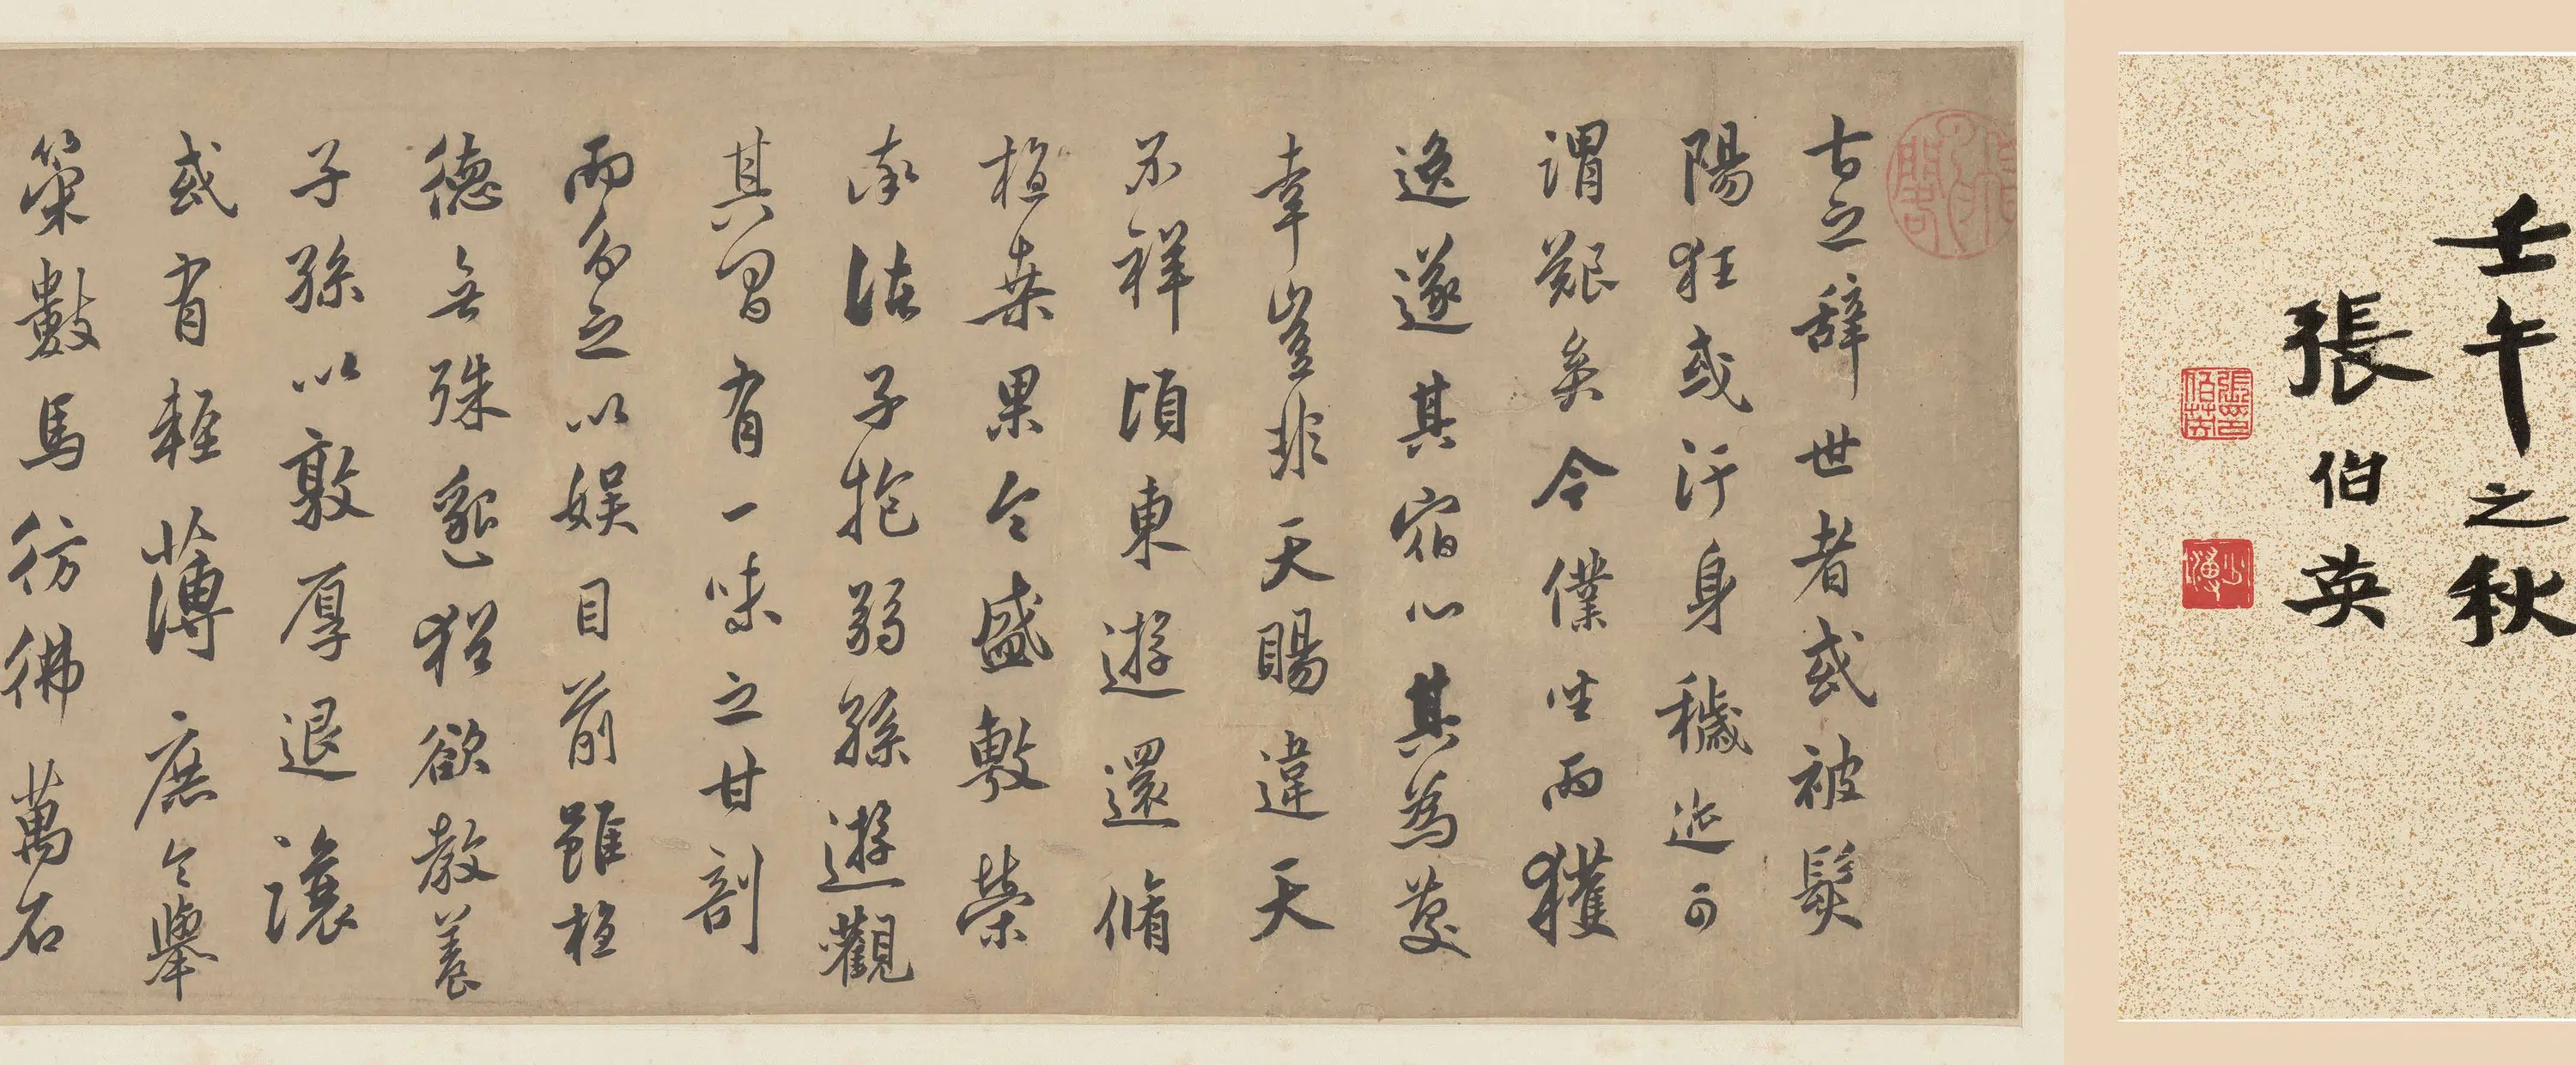 壬午之秋
張伯英
張伯英印
少溥
古之辭世者或被髮
陽狂或汙身穢迹可
謂艱矣今僕坐而獲
逸遂其宿心其為慶
幸豈非天賜違天
不祥頃東遊還脩
植桑果今盛敷榮
率諸子抱弱孫遊觀
其間有一味之甘割
而分之以娛目前雖植
德無殊邈猶欲教養
子孫以敦厚退讓
或有輕薄庶令舉
策數馬彷彿萬石